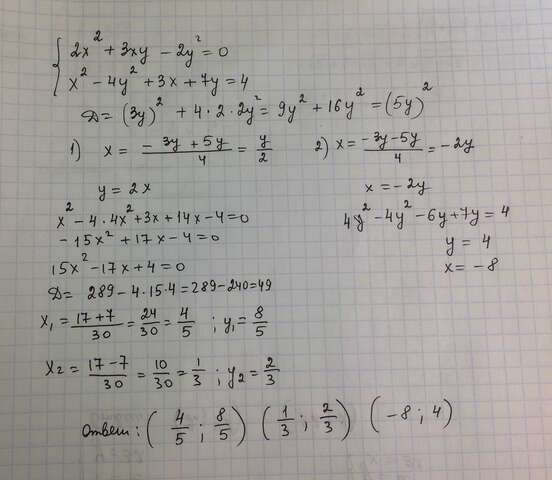 { 2x² + 3xy − 2y² = 0
x² − 4y² + 3x + 7y = 4
D = (3y)² + 4·2·2y² = 9y² + 16y² = (5y)²
1) x = (−3y + 5y)/4 = y/2
y = 2x
x² − 4·4x² + 3x + 14x − 4 = 0
−15x² + 17x − 4 = 0
15x² − 17x + 4 = 0
D = 289 − 4·15·4 = 289 − 240 = 49
x₁ = (17+7)/30 = 24/30 = 4/5 ; y₁ = 8/5
x₂ = (17−7)/30 = 10/30 = 1/3 ; y₂ = 2/3
2) x = (−3y − 5y)/4 = −2y
x = −2y
4y² − 4y² − 6y + 7y = 4
y = 4
x = −8
Ответ: (4/5 ; 8/5) (1/3 ; 2/3) (−8 ; 4)